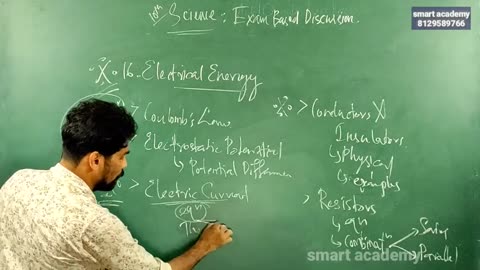 10th Science : Exam Based Discussion.
smart academy
8129589766
X. 16. Electrical Energy
> Coulomb's Law
Electrostatic Potential
↳ Potential Difference
> Electric Current
(eqn)
> Conductors X
Insulators
↳ Physical
↳ examples
> Resistors
↳ eqn
↳ Combinatn
Series
Parallel
smart academy